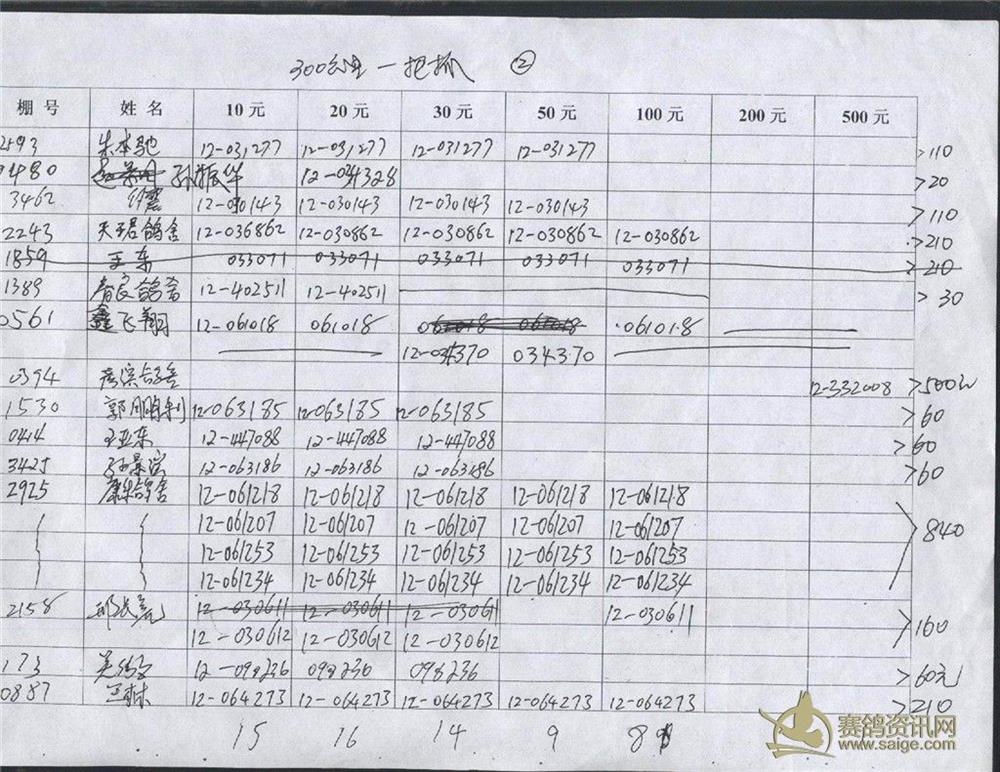 300公里一把抓 ②
棚号 姓名 10元 20元 30元 50元 100元 200元 500元
2593 朱本驰 12-031277 12-031277 12-031277 12-031277 >110
9480 孙振华 12-031328 >20
3462 12-030143 12-030143 12-030143 12-030143 >110
2243 天君鸽舍 12-036862 12-030862 12-030862 12-030862 12-030862 >210
1859 王东 033071 033071 033071 033071 033071 >210
1389 春良鸽舍 12-402511 12-402511 >30
0561 鑫飞翔 12-061018 061018 061018 061018 061018
12-034370 034370
0394 12-332008 >500元
1530 郭月胜利 12-063185 12-063185 12-063185 >60
0414 王亚东 12-447088 12-447088 12-447088 >60
3425 孙景滨 12-063186 12-063186 12-063186 >60
2925 康华鸽舍 12-061218 12-061218 12-061218 12-061218 12-061218
12-061207 12-061207 12-061207 12-061207 12-061207 >840
12-061253 12-061253 12-061253 12-061253 12-061253
12-061234 12-061234 12-061234 12-061234 12-061234
2158 12-030611 12-030611 12-030611 12-030611 >160
12-030612 12-030612 12-030612
173 12-098236 098236 098236 >60元
0887 12-064273 12-064273 12-064273 12-064273 12-064273 >210
15 16 14 9 8
赛鸽资讯网
www.saige.com